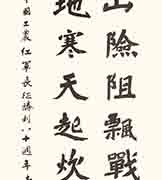 山險阻飄戰
地寒天起炊
中國工農紅軍長征勝利八十週年